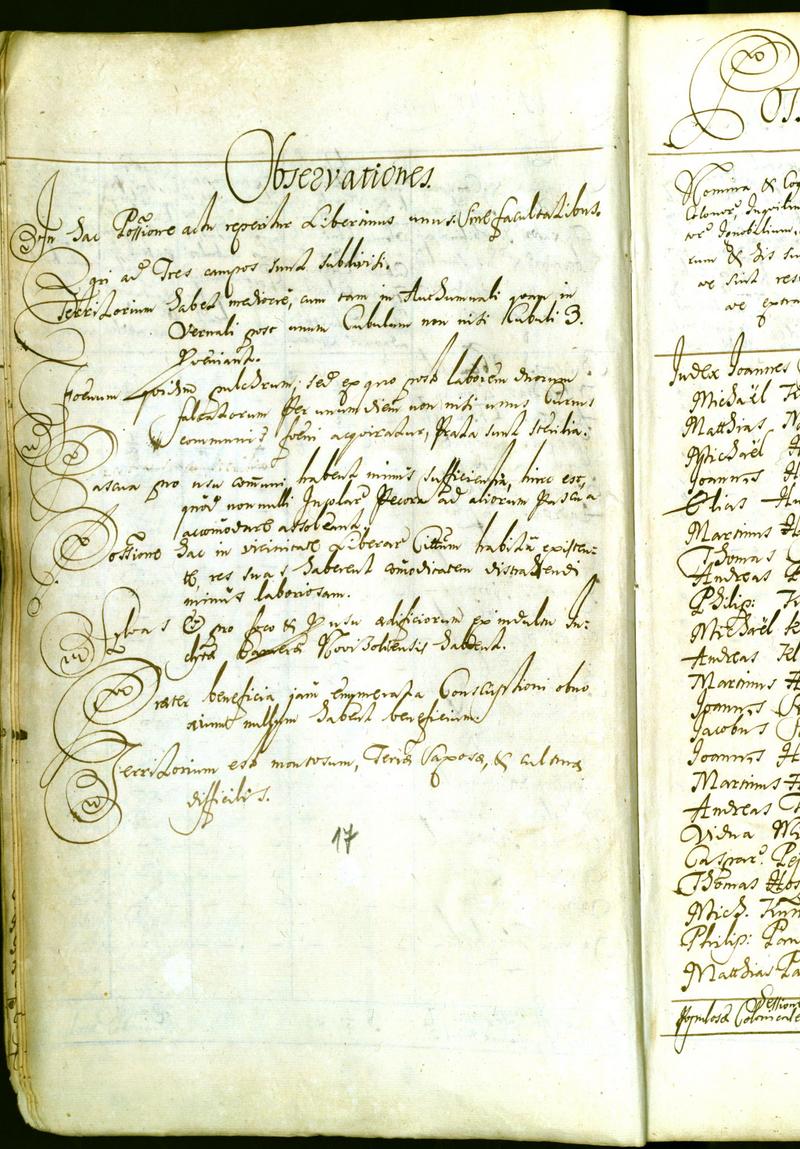 Observationes.
In hac Possione actu reperitur Libertinus unus sine facultatibus.
Agri ad Tres campos sunt subdivisi.
Territorium habet mediocre, cum tam in Authumnali quam in
Vernali post unum Cubulum non nisi Kubuli 3.
Proveniant.
Foenum quidem pulchrum, sed ex quo post laborem duorum
falcatorum per unum diem non nisi unus Currus
communis foeni acquiratur, Prata sunt sterilia.
Pascua pro usu comuni habent minus sufficientia, hinc est,
quod nonnulli Incolar Pecora ad aliorum Pascua
accomodare assoleant.
Possione hac in vicinitate Liberar Cittum habita existen-
te res suas haberent comoditatem distrahendi
minus laboriosam.
Sylvas pro foco & usu aedificiorum ex indultu In-
clytae Novi Soliensis habent.
Praeter beneficia jam enumerata Conscriptioni obno
xiume nullum habent beneficium.
Territorium est montosum, Terra Saxosa, & cultura
difficilis.
17
Nomina & Co
Colonor, Inquilin
rum & his su
ae sint res
ae extra
Judex Joannes
Michaël
Matthias
Michaël
Joannes
Elias
Martinus
Thomas
Andreas
Philip:
Michaël
Andreas
Martinus
Joannes
Jacobus
Joannes
Martinus
Andreas
Vidua
Caspar
Thomas Hos
Mich.
Philip:
Matthias
Populosae Colonicale
Session